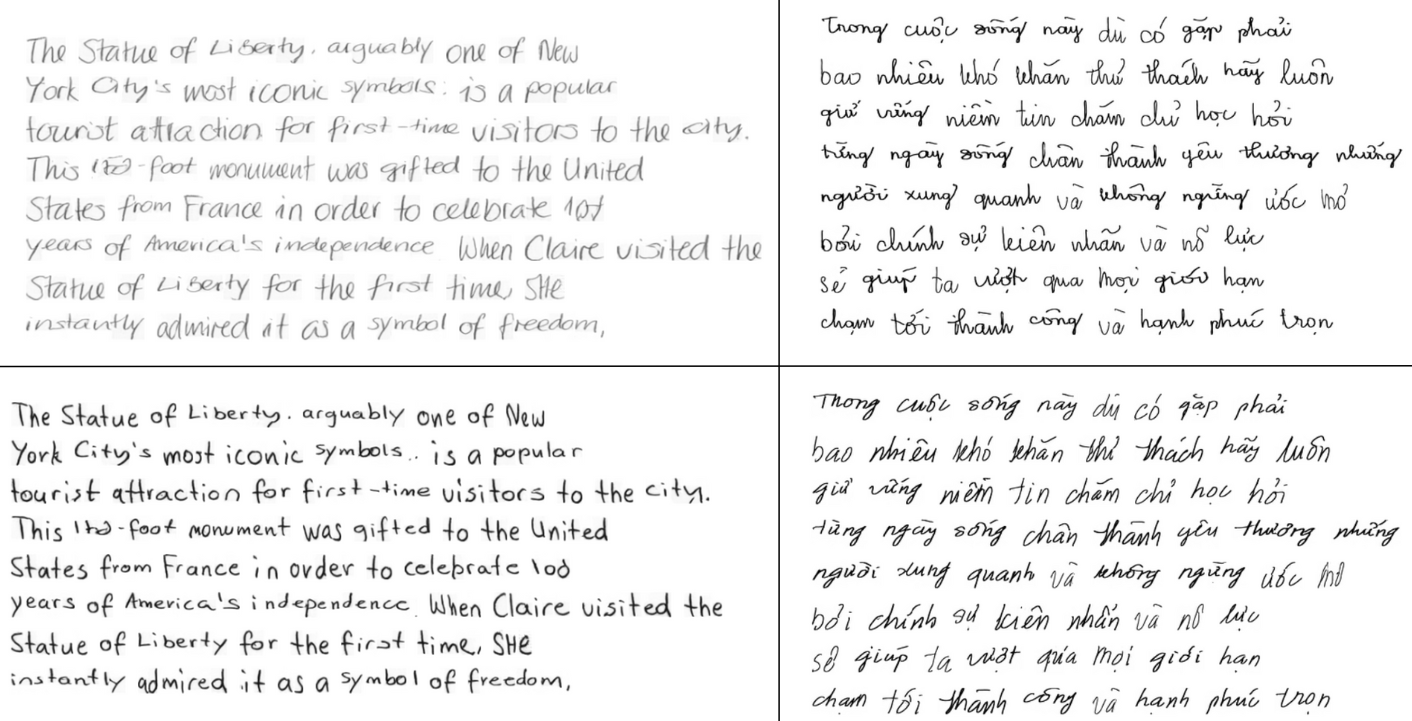 The Statue of Liberty. arguably one of New
York City's most iconic symbols. is a popular
tourist attraction for first-time visitors to the city.
This -foot monument was gifted to the United
States from France in order to celebrate
years of America's independence When Claire visited the
Statue of Liberty for the first time, SHe
instantly admired it as a symbol of freedom,
Trong cuộc sống này dù có gặp phải
bao nhiêu khó khăn thử thách hãy luôn
giữ vững niềm tin chăm chỉ học hỏi
từng ngày sống chân thành yêu thương những
người xung quanh và không ngừng ước mơ
bởi chính sự kiên nhẫn và nỗ lực
sẽ giúp ta vượt qua mọi giới hạn
chạm tới thành công và hạnh phúc trọn
The Statue of Liberty. arguably one of New
York City's most iconic symbols.. is a popular
tourist attraction for first-time visitors to the city.
This -foot monument was gifted to the United
States from France in order to celebrate 100
years of America's independence. When Claire visited the
Statue of Liberty for the first time, SHe
instantly admired it as a symbol of freedom,
Thong cuộc sống này dù có gặp phải
bao nhiêu khó khăn thử thách hãy luôn
giữ vững niềm tin chăm chỉ học hỏi
từng ngày sống chân thành yêu thương những
người xung quanh và không ngừng ước mơ
bởi chính sự kiên nhẫn và nỗ lực
sẽ giúp ta vượt qua mọi giới hạn
chạm tới thành công và hạnh phúc trọn